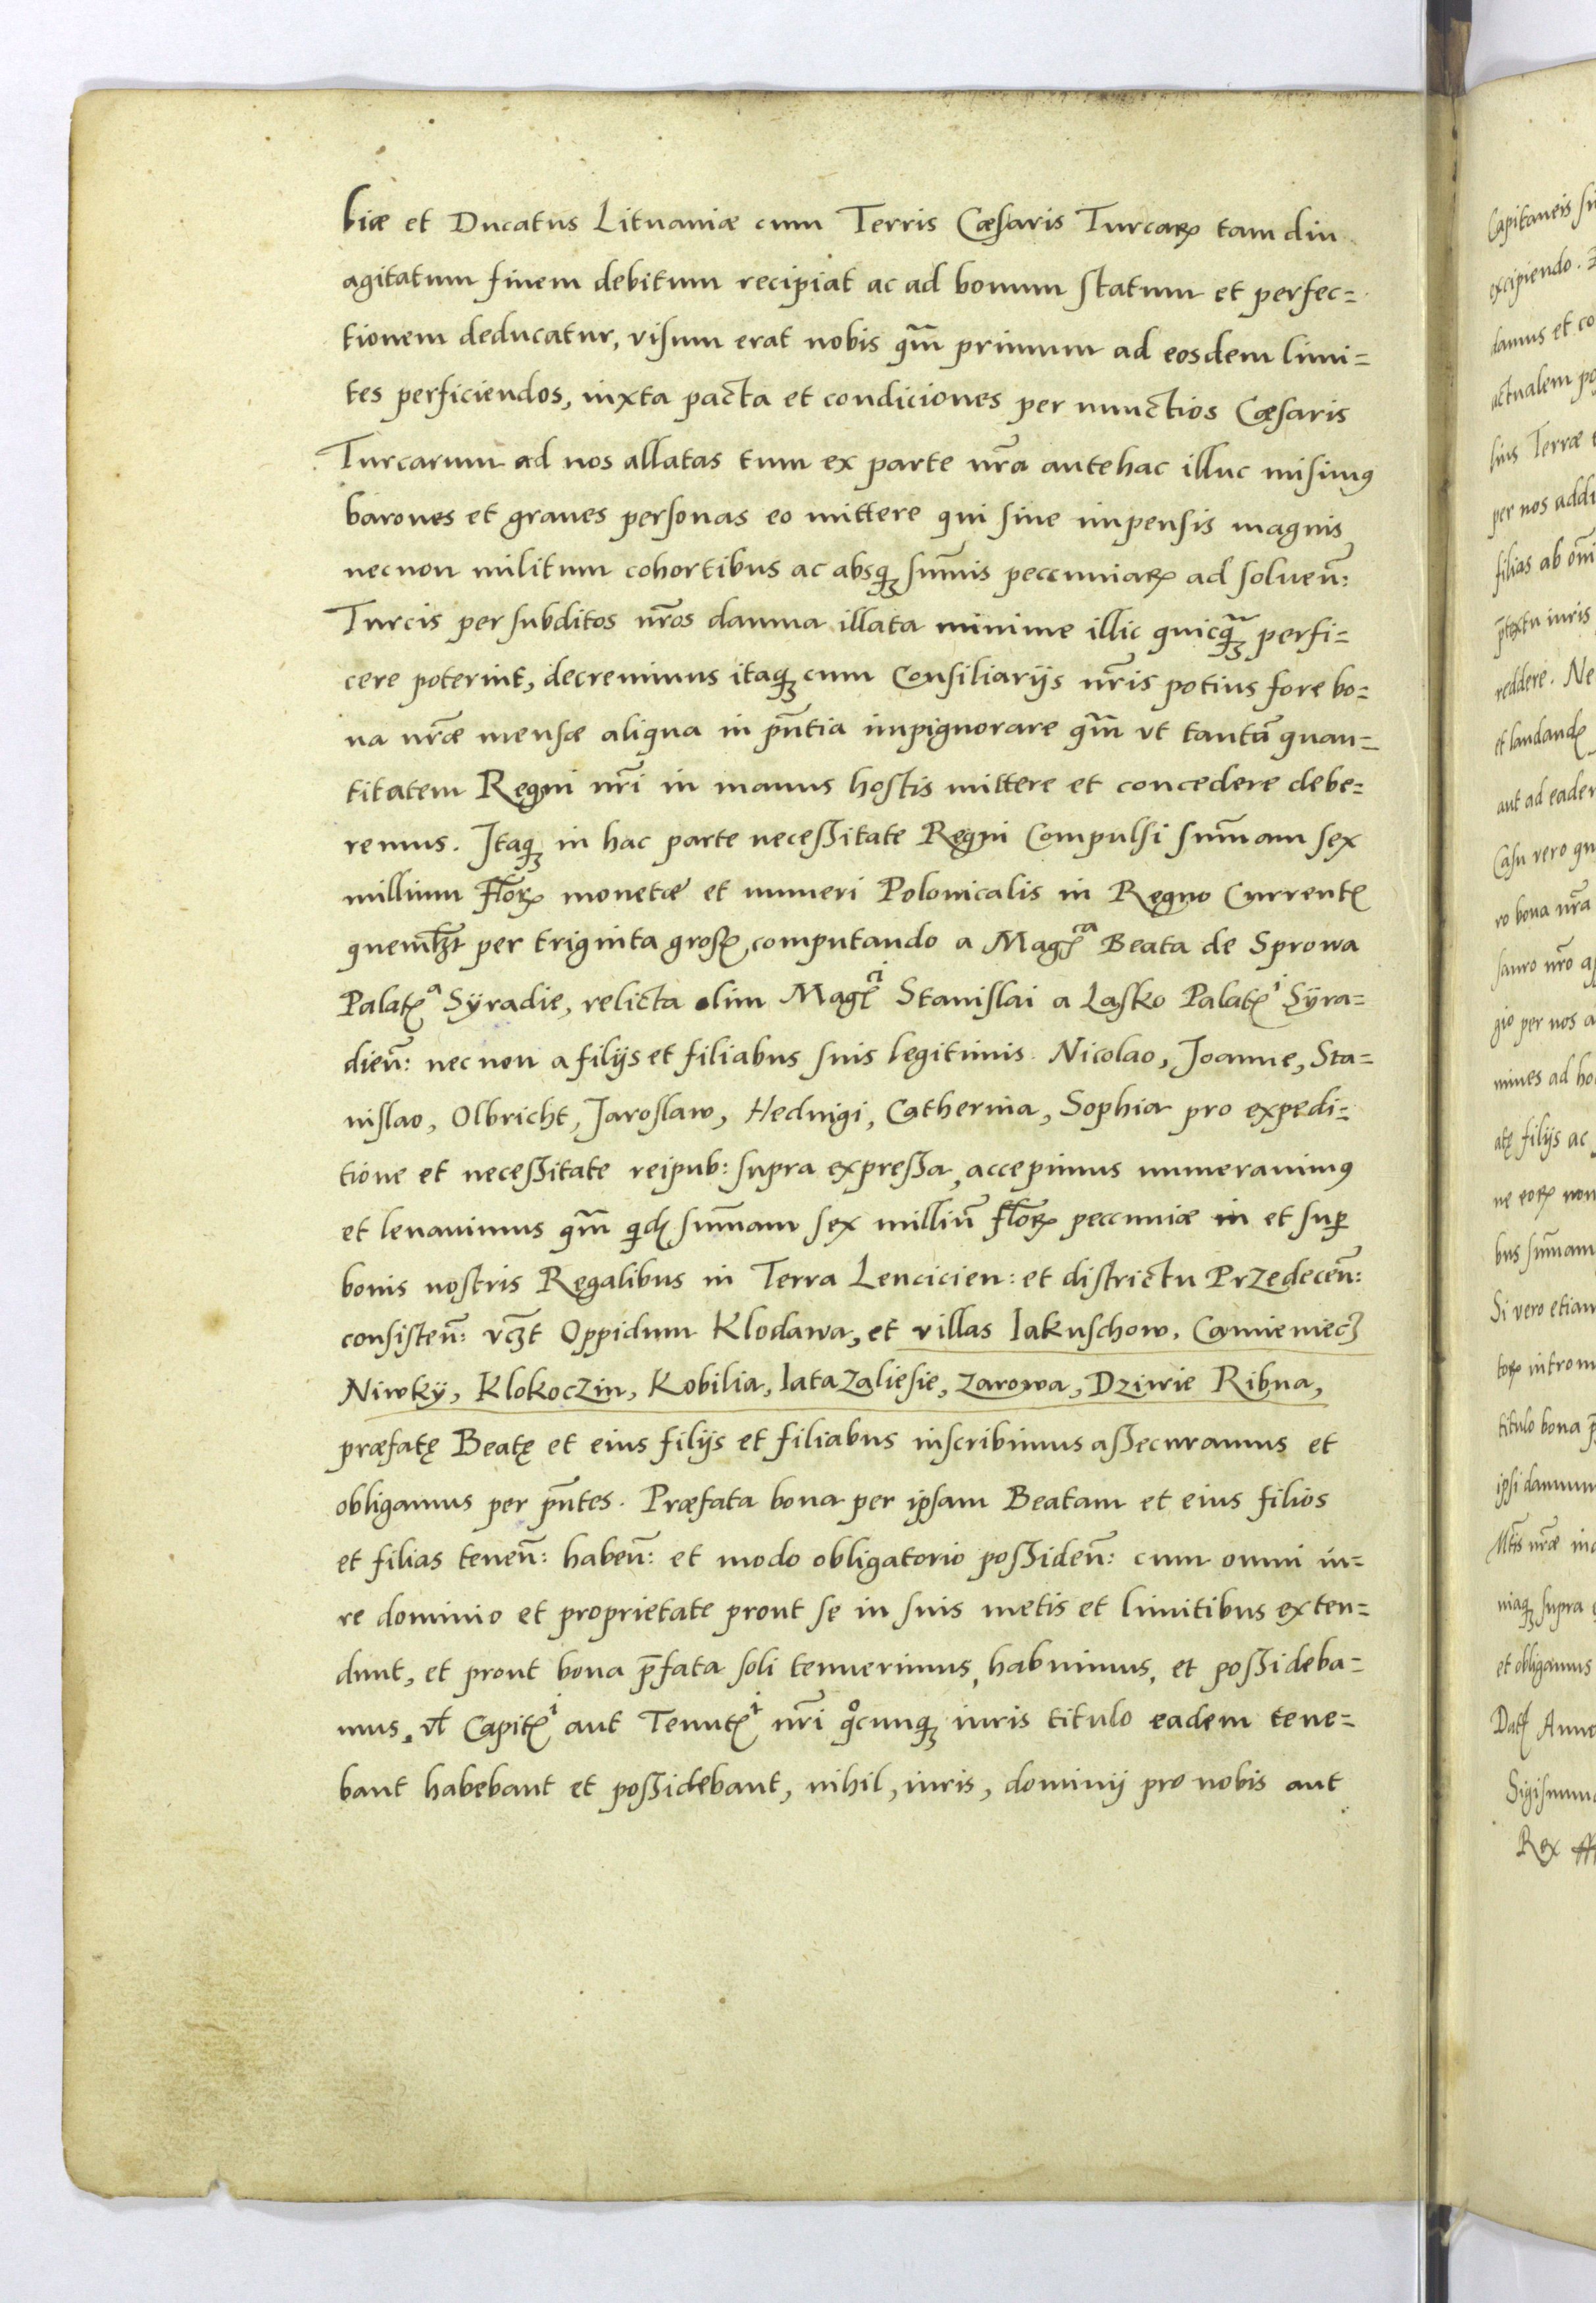 biæ et Ducatus Lituaniæ cum Terris Cæsaris Turcaꝝ tam diu
agitatum finem debitum recipiat ac ad bonum statum et perfec=
tionem deducatur, visum erat nobis qm̃ primum ad eosdem limi=
tes perficiendos, iuxta pacta et condiciones per nunctios Cæsaris
Turcarum ad nos allatas tum ex parte nrã antehac illuc misimꝰ
barones et graues personas eo mittere qui sine impensis magnis
necnon militum cohortibus ac absqꝫ sum̃is peccuniaꝝ ad soluen̄:
Turcis per subditos nrõs damna illata minime illic quicqꝫ̃ perfi=
cere poterint, decreuimus itaqꝫ cum Consiliarijs nrĩs potius fore bo=
na nrẽ mensæ aliqua in pn̄tia impignorare qm̃ vt tantã quan=
titatem Regni nrĩ in manus hostis mittere et concedere debe=
remus. Itaqꝫ in hac parte neceßitate Regni Compulsi sum̃am sex
millium florꝝ monetæ et numeri Polonicalis in Regno Currentꝭ
quemlꝫt per triginta grosꝭ, computando a Magcꝭᶜᵃ Beata de Sprowa
Palatꝭᵃ Sÿradie, relicta olim Magꝭᶜⁱ Stanislai a Lasko Palatꝭⁱ Sÿra=
dien̄: nec non a filijs et filiabus suis legitimis Nicolao, Joanne, Sta=
nislao, Olbricht, Jaroslaw, Heduigi, Catherina, Sophia pro expedi=
tione et neceßitate reipub: supra expreßa, accepimus numerauimꝰ
et leuauimus qm̃ qidꝭ sum̃am sex milliũ florꝝ peccuniæ in et supꝭ
bonis nostris Regalibus in Terra Lencicien: et districtu Przedecen̄:
consisten̄: vcꝫt Oppidum Klodawa, et villas Iakuschow, Camieniecꝫ
Niwkÿ, Klokoczin, Kobilia, Iata Zaliesie, Zarowa, Dziwie Ribna,
præfatę Beatę et eius filijs et filiabus inscribimus aßecuramus et
obligamus per pn̄tes. Præfata bona per ipsam Beatam et eius filios
et filias tenen̄: haben̄: et modo obligatorio poßiden̄: cum omni iu=
re dominio et proprietate prout se in suis metis et limitibus exten=
dunt, et prout bona p̄fata soli tenuerimus, habuimus, et poßideba=
mus, vl̃ Capitꝭⁱ aut Tenutꝭⁱ nrĩ qͦcunqꝫ iuris titulo eadem tene=
bant habebant et poßidebant, nihil, iuris, dominij pro nobis aut